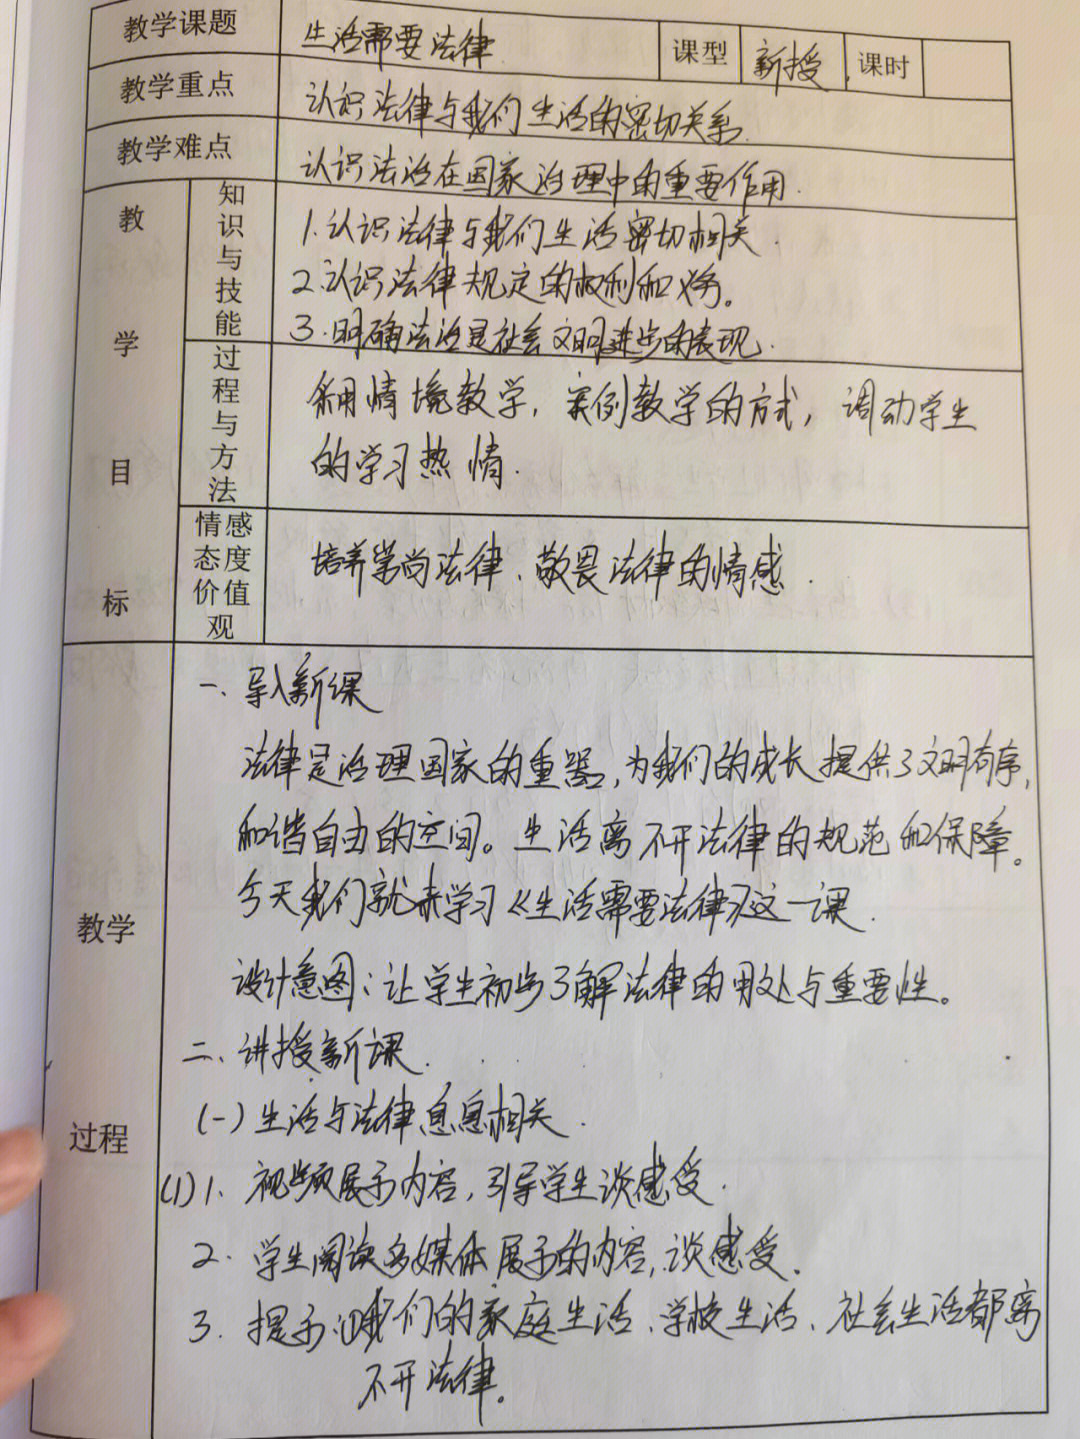 教学课题 生活需要法律 课型 新授 课时
教学重点 认识法律与我们生活的密切关系.
教学难点 认识法治在国家治理中的重要作用.
教学目标
知识与技能
1.认识法律与我们生活密切相关.
2.认识法律规定的权利和义务。
3.明确法治是社会文明进步的表现.
过程与方法
采用情境教学,案例教学的方式,调动学生
的学习热情.
情感态度价值观
培养崇尚法律、敬畏法律的情感.
教学过程
一、导入新课
法律是治理国家的重器,为我们的成长提供了文明有序,
和谐自由的空间。生活离不开法律的规范和保障。
今天我们就来学习《生活需要法律》这一课.
设计意图:让学生初步了解法律的用处与重要性。
二、讲授新课.
(一)生活与法律息息相关.
(1)1、视频展示内容,引导学生谈感受.
2.学生阅读多媒体展示的内容,谈感受.
3.提示:(1)我们的家庭生活、学校生活、社会生活都离
不开法律。